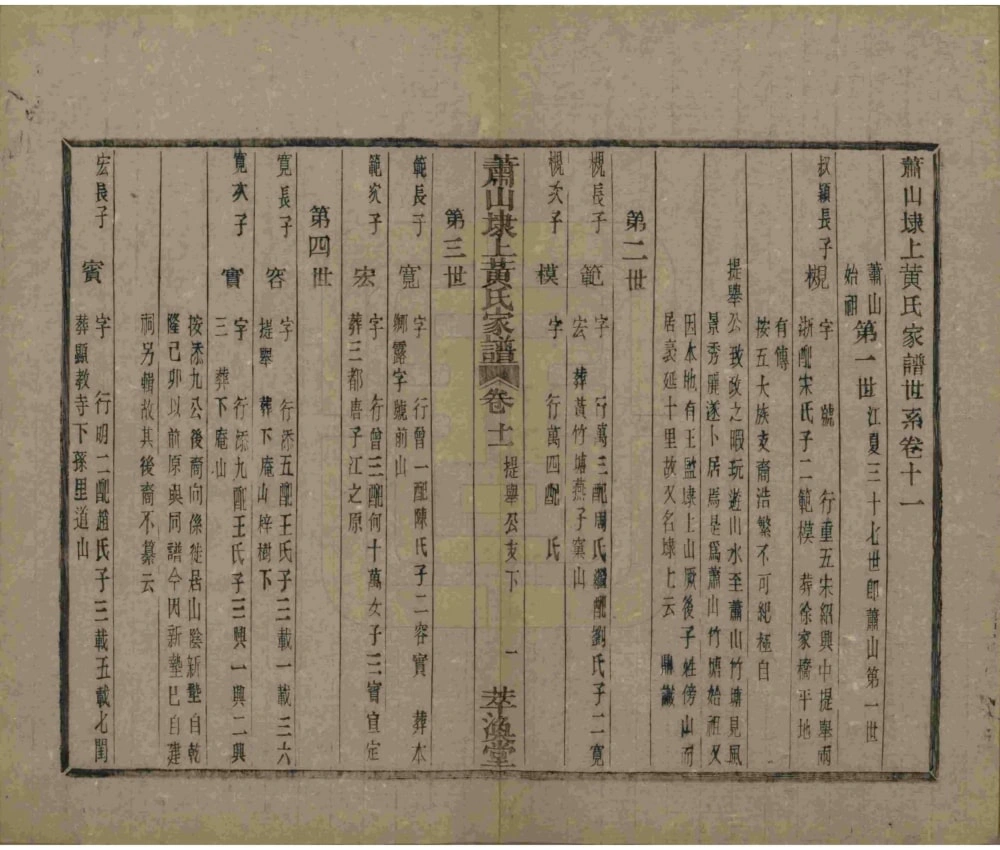 蕭山埭上黄氏家譜世系卷十一
蕭山始祖 第一世 江夏三十七世郎蕭山第一世
叔穎長子 槻 字 號 行重五宋紹興中提舉兩
浙配宋氏子二範模 葬徐家橋平地
有傳
按五大族支裔浩繁不可紀極自
提舉公致政之暇玩遊山水至蕭山竹塘見風
景秀麗遂卜居焉是爲蕭山竹塘始祖又
因本地有王監埭上山厥後子姓傍山而
居袤延十里故又名埭上云 鼎識
第二世
槻長子 範 字 行萬三配周氏繼配劉氏子二寛
宏 葬黃竹塘燕子窠山
槻次子 模 字 行萬四配 氏
蕭山埭上黃氏家譜 卷十一 提舉公支下 一 萃渙堂
第三世
範長子 寛 字 行曾一配陳氏子二容實 葬木
鄉露字號前山
範次子 宏 字 行曾三配何十萬女子三賓宜定
葬三都唐子江之原
第四世
寛長子 容 字 行添五配王氏子三載一載三六
提舉 葬下庵山梓樹下
寛次子 實 字 行添九配王氏子三興一興二興
三 葬下庵山
按添九公後裔向係徙居山陰新墊自乾
隆己卯以前原與同譜今因新墊已自建
祠另輯故其後裔不纂云
宏長子 賓 字 行明二配趙氏子三載五載七閏
葬顯教寺下孫里道山